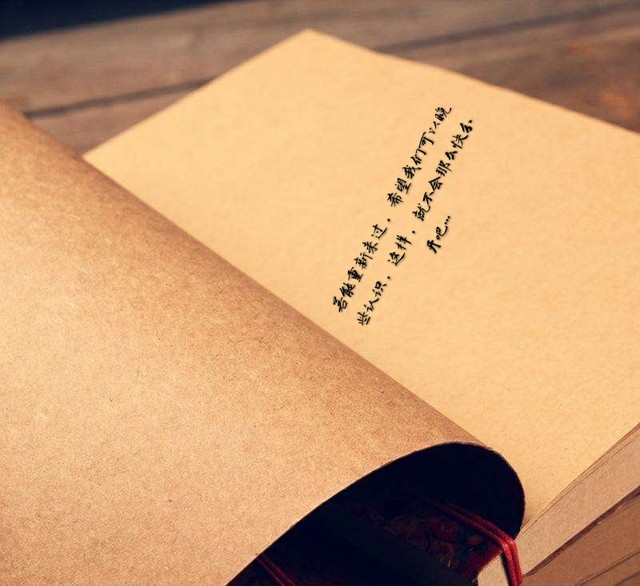 若能重新来过，希望我们可以晚
些认识，这样，就不会那么快分
开吧...